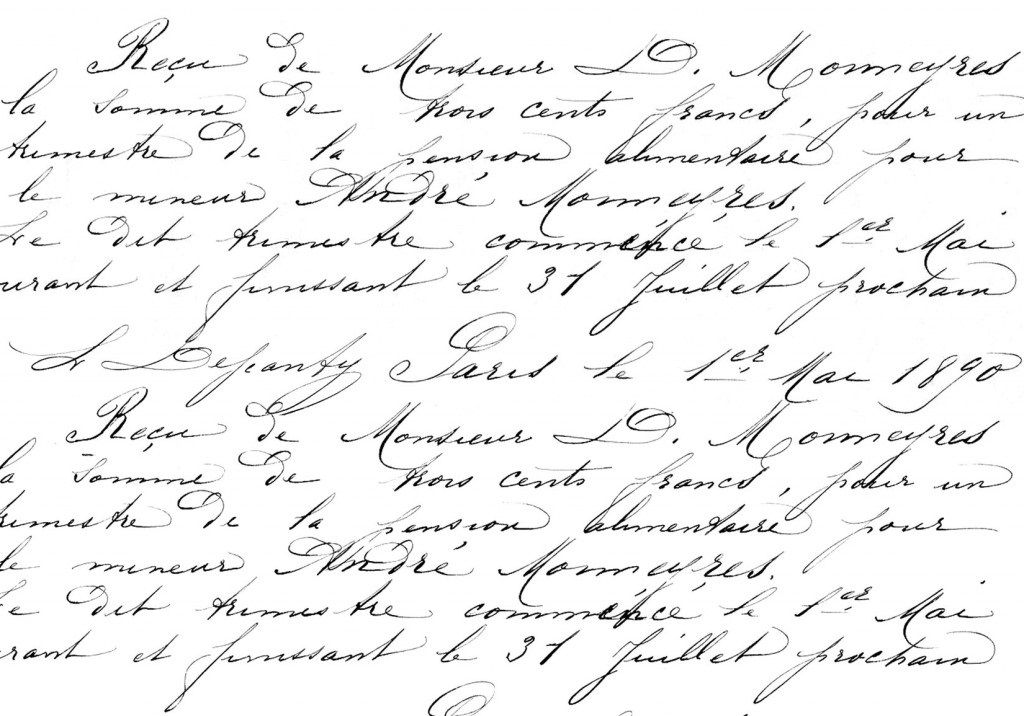 Reçu de Monsieur D. Monneyres
la somme de trois cents francs, pour un
trimestre de la pension alimentaire pour
le mineur André Monneyres.
Le dit trimestre commencé le 1er Mai
ourant et finissant le 31 Juillet prochain
Paris le 1er Mai 1890
Reçu de Monsieur D. Monneyres
la somme de trois cents francs, pour un
trimestre de la pension alimentaire pour
le mineur André Monneyres.
Le dit trimestre commencé le 1er Mai
rant et finissant le 31 Juillet prochain